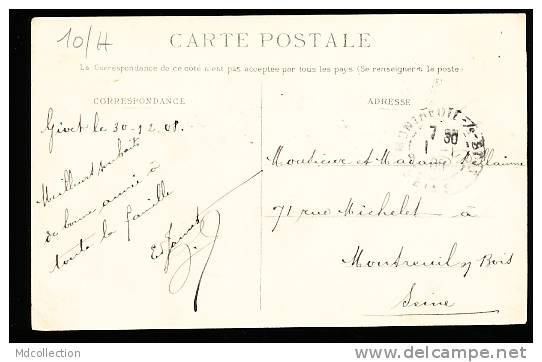 10/H
CARTE POSTALE
La Correspondance de ce côté n'est pas acceptée par tous les pays (Se renseigner à la poste)
CORRESPONDANCE
ADRESSE
Givet le 30-12 08.
Meilleurs souhaits
de bonne année à
toute la famille
Monsieur et Madame
71 rue Michelet - à
Montreuil s/ Bois
Seine
7 30
Mdcollection
delcampe.net